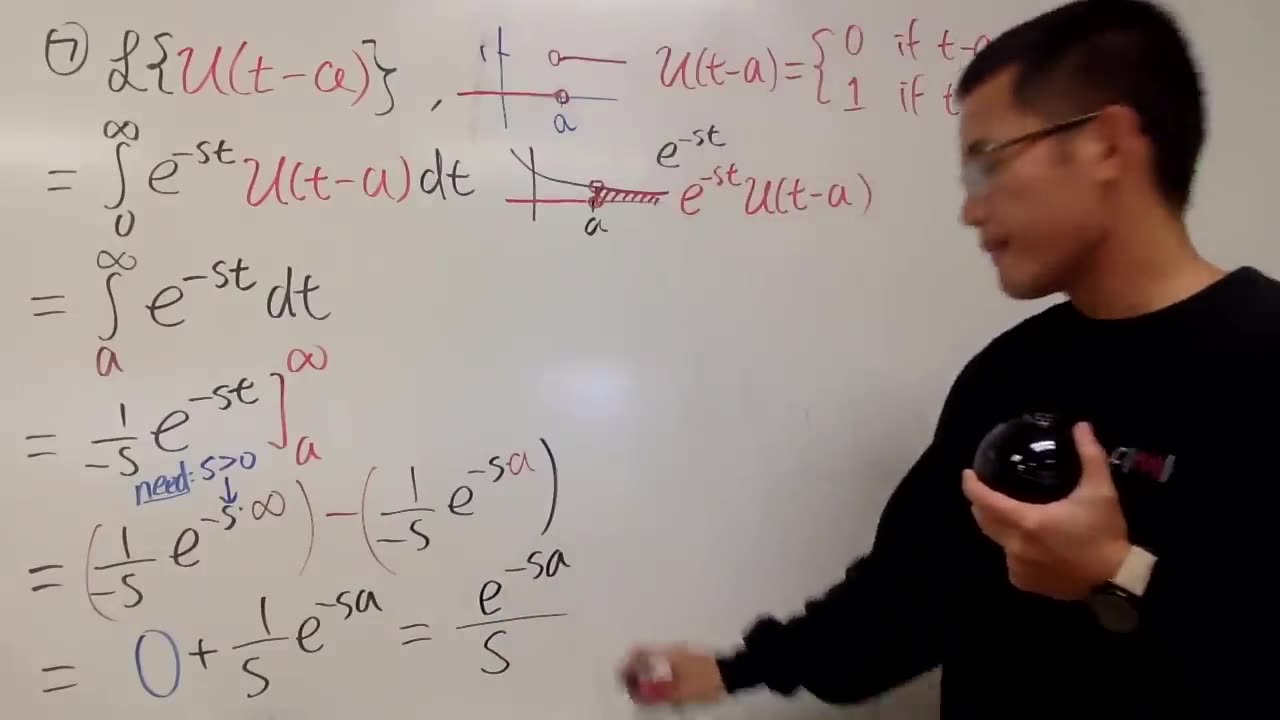 ⑦ ℒ{U(t-a)}, 1 a U(t-a)={0 if t-a
1 if t
= ∫₀^∞ e^{-st} U(t-a) dt a e^{-st} e^{-st} U(t-a)
= ∫ₐ^∞ e^{-st} dt
= 1/-s e^{-st} ]ₐ^∞
need: s>0
= (1/-s e^{-s·∞}) - (1/-s e^{-sa})
= 0 + 1/s e^{-sa} = e^{-sa}/s